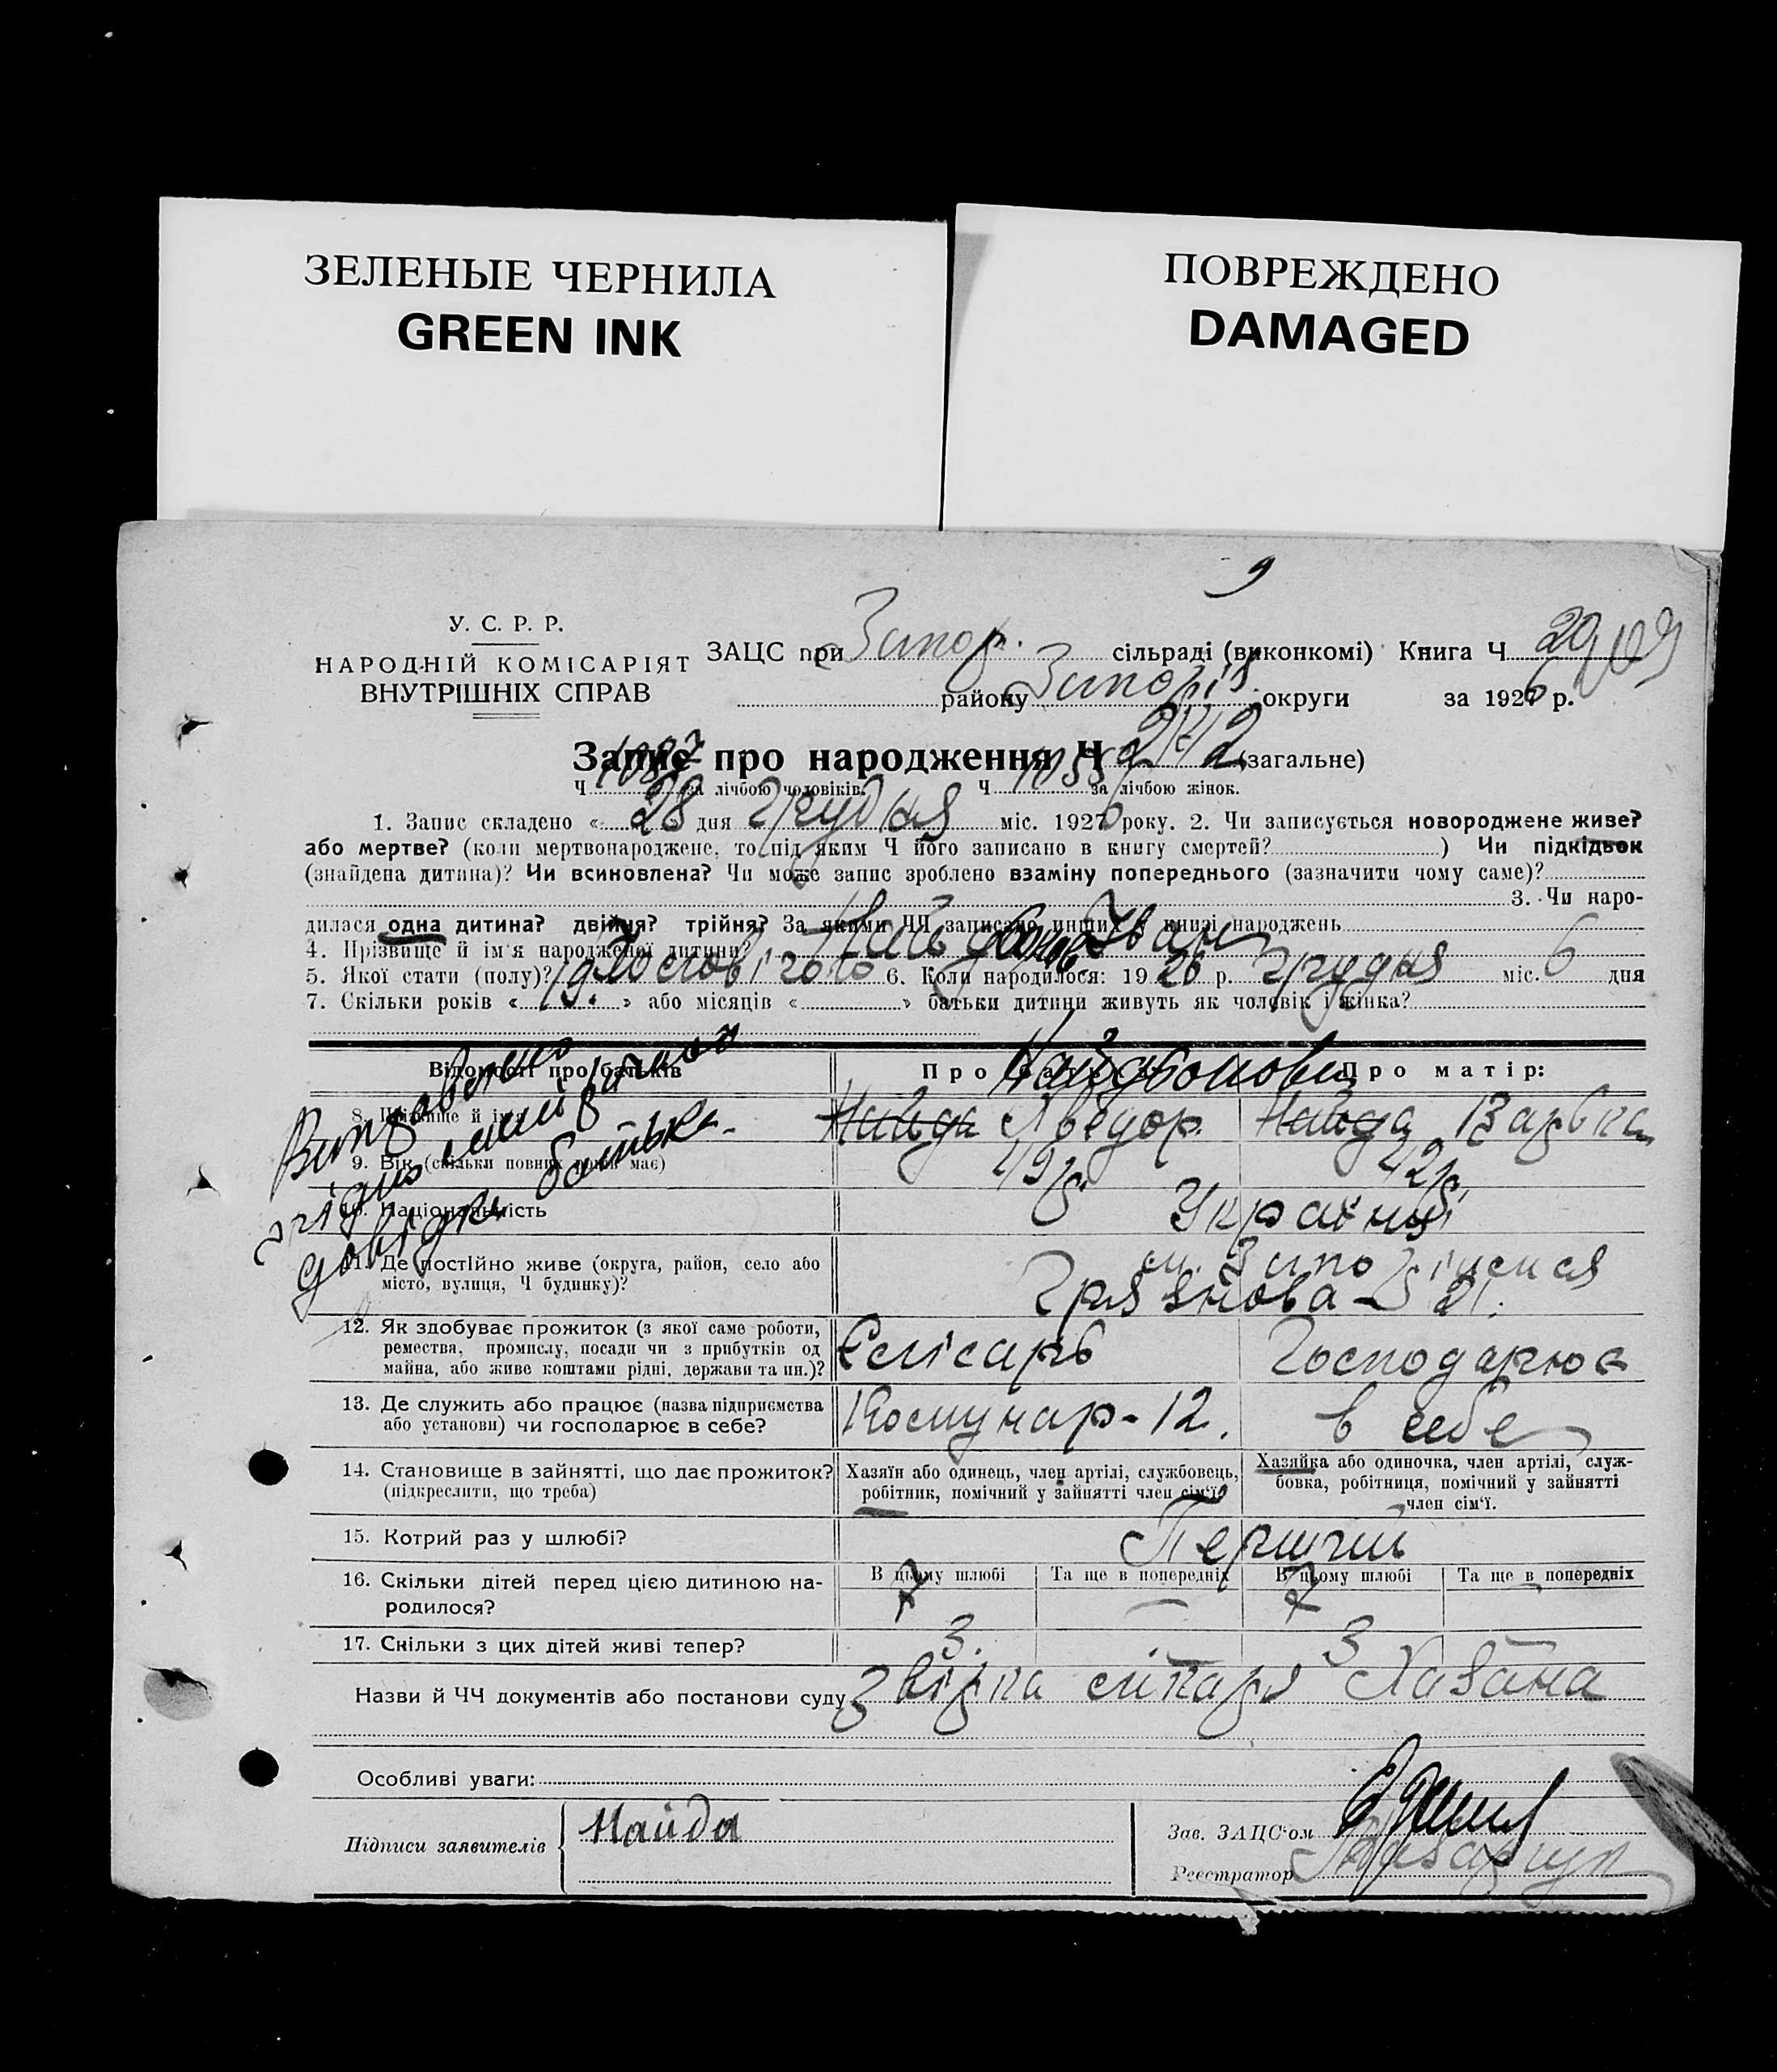 ЗЕЛЕНЫЕ ЧЕРНИЛА
GREEN INK
ПОВРЕЖДЕНО
DAMAGED
9
У. С. Р. Р.
НАРОДНІЙ КОМІСАРІЯТ
ВНУТРІШНІХ СПРАВ
ЗАЦС при Запор. сільраді (виконкомі) Книга Ч 29
району Запоріз округи за 1926 р.
Запис про народження Ч 2142 (загальне)
Ч 1087 за лічбою чоловіків. Ч 1055 за лічбою жінок.
1. Запис складено « 28 » дня Грудня міс. 1926 року. 2. Чи записується новороджене живе?
або мертве? (коли мертвонароджене, то під яким Ч його записано в книгу смертей? ) Чи підкідьок
(знайдена дитина)? Чи всиновлена? Чи може запис зроблено взаміну попереднього (зазначити чому саме)?
3. Чи наро-
дилася одна дитина? двійня? трійня? За якими ЧЧ записано инших в книзі народжень
4. Прізвище й ім'я народженої дитини? Найдьонов Іван
5. Якої стати (полу)? чоловічого 6. Коли народилося: 1926 р. Грудня міс. 6 дня
7. Скільки років « 19. » або місяців « » батьки дитини живуть як чоловік і жінка?
Виправлено
згідно
довідки батька.
Відомості про батьків
Найдьонови
Про матір:
8. Прізвище й ім'я
Найда Хведор
Найда Варька
9. Вік (скільки повних років має)
49р.
42р.
10. Національність
Українці
11. Де постійно живе (округа, район, село або
місто, вулиця, Ч будинку)?
м. Запоріжжя
Грязнова - 21.
12. Як здобуває прожиток (з якої саме роботи,
ремества, промислу, посади чи з прибутків од
майна, або живе коштами рідні, держави та ин.)?
Слісарь
Господарює
13. Де служить або працює (назва підприємства
або установи) чи господарює в себе?
Комунар-12.
в себе
14. Становище в зайнятті, що дає прожиток?
(підкреслити, що треба)
Хазяїн або одинець, член артілі, службовець,
робітник, помічний у зайнятті член сім'ї
Хазяйка або одиночка, член артілі, служ-
бовка, робітниця, помічний у зайнятті
член сім'ї.
15. Котрий раз у шлюбі?
Перший
16. Скільки дітей перед цією дитиною на-
родилося?
В цьому шлюбі Та ще в попередніх В цьому шлюбі Та ще в попередніх
7 — 7
17. Скільки з цих дітей живі тепер?
3. 3
Назви й ЧЧ документів або постанови суду звірка лікаря Хазана
Особливі уваги:
Підписи заявителів
Найда
Зав. ЗАЦС'ом
Реєстратор